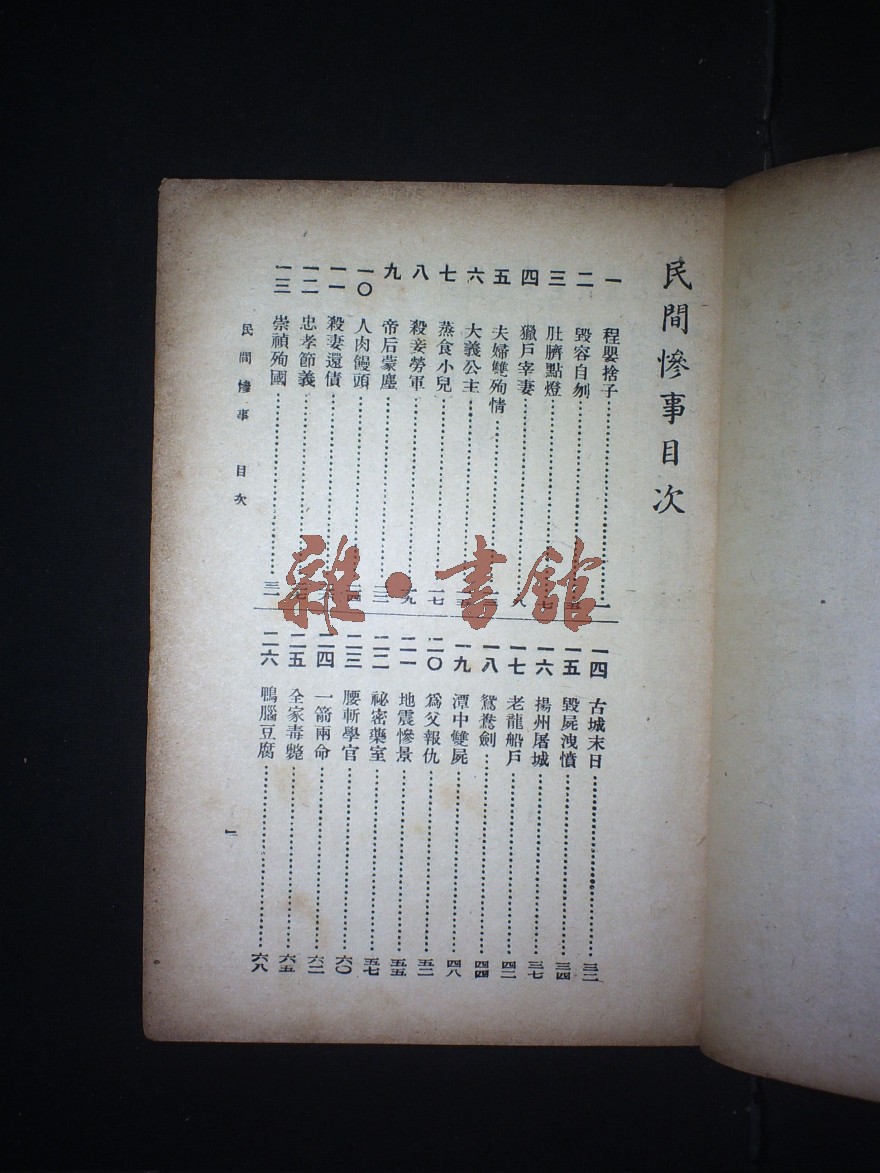 民間慘事目次
一 程嬰捨子……一
二 毀容自刎
三 肚臍點燈……七
四 獵戶宰妻……八
五 夫婦雙殉情
六 大義公主
七 蒸食小兒……一七
八 殺妾勞軍……一九
九 帝后蒙塵
一〇 人肉饅頭……二四
一一 殺妻還債
一二 忠孝節義
一三 崇禎殉國……三一
一四 古城末日……三二
一五 毀屍洩憤……三四
一六 揚州屠城……三七
一七 老龍船戶……四二
一八 鴛鴦劍……四四
一九 潭中雙屍……四八
二〇 爲父報仇……五二
二一 地震慘景……五五
二二 祕密藥室……五七
二三 腰斬學官……六〇
二四 一箭兩命……六二
二五 全家毒斃……六五
二六 鴨腦豆腐……六八
民間慘事 目次
一
雜·書館